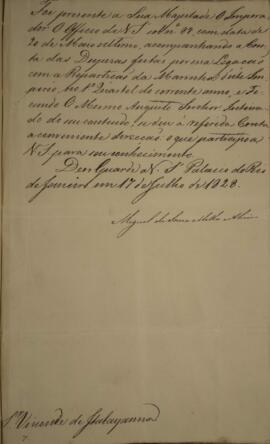 Foi presente a Sua Magestade O Impera
dor O Officio de V. Sª Nº 87, com data de
20 de Maio ultimo, acompanhando a Con
ta das Despezas feitas por essa Legacaõ
com a Repartiçaõ da Marinha deste Im
perio, no 1º Quartel do corrente anno, e Fi
cando O Mesmo Augusto Senhor Inteira
do do seu contendo, se deu à referida Conta
a conveniente direcçaõ: o que participo a
V. Sª para seu conhecimento.
Deos Guarde a V. Sª Palacio do Rio
de Janeiro em 17 de Julho de 1828.
Miguel de Souza Mello e Alvim
Sr Visconde de Itabayanna